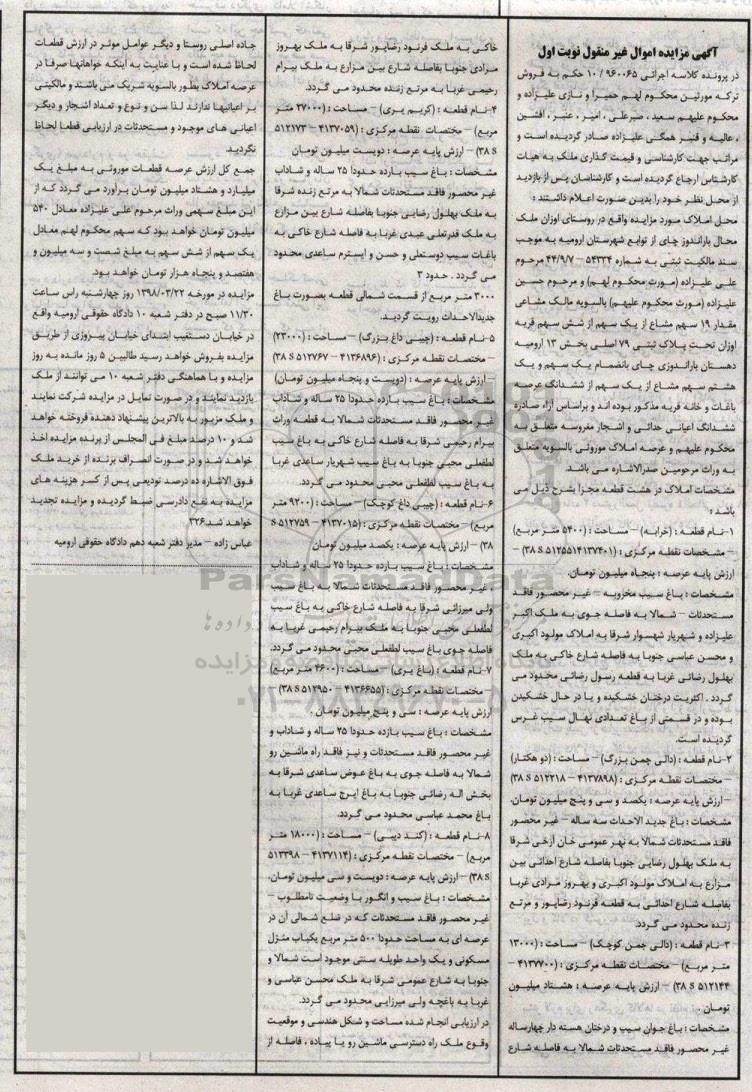 آگهی مزایده اموال غیر منقول نوبت اول
در پرونده کلاسه اجرائی ۹۶۰۰۶۵ / ۱۰ حکم به فروش
ترکه مورثین محکوم لهم حمیرا و نازی علیزاده و
محکوم علیهم سعید ، صیرعلی ، امیر ، عنبر ، افشین
، عالیه و قنبر همگی علیزاده صادر گردیده است و
مراتب جهت کارشناسی و قیمت گذاری ملک به هیات
کارشناس ارجاع گردیده است و کارشناسان پس از بازدید
از محل نظر خود را بدین صورت اعلام داشتند :
محل املاک مورد مزایده واقع در روستای اوزان ملک
محال باراندوز چای از توابع شهرستان ارومیه به موجب
سند مالکیت ثبتی به شماره ۵۴۳۳۴ – ۴۴/۹/۷ مرحوم
علی علیزاده (مورث محکوم لهم) و مرحوم حسین
علیزاده (مورث محکوم علیهم) بالسویه مالک مشاعی
مقدار ۱۹ سهم مشاع از یک سهم از شش سهم قریه
اوزان تحت پلاک ثبتی ۷۹ اصلی بخش ۱۳ ارومیه
دهستان باراندوزی چای بانضمام یک سهم و یک
هشتم سهم مشاع از یک سهم از ششدانگ عرصه
باغات و خانه قریه مذکور بوده اند و براساس آراء صادره
ششدانگ اعیانی حدائی و اشجار مغروسه متعلق به
محکوم علیهم و عرصه املاک موروثی بالسویه متعلق
به وراث مرحومین صدرالاشاره می باشد.
مشخصات املاک در هشت قطعه مجزا بشرح ذیل می
باشد :
۱–نام قطعه : (خرابه) – مساحت : (۵۴۰۰ متر مربع)
– مشخصات نقطه مرکزی : (۴۱۳۷۴۰۱–۵۱۲۵۵۱ ۳۸S) –
ارزش پایه عرصه : پنجاه میلیون تومان.
مشخصات : باغ سیب مخروبه – غیر محصور فاقد
مستحدثات – شمالا به فاصله جوی به ملک اکبر
علیزاده و شهریار شهسوار شرقا به املاک مولود اکبری
و محسن عباسی جنوبا به فاصله شارع خاکی به ملک
بهلول رضائی غربا به قطعه رسول رضائی محدود می
گردد . اکثریت درختان خشکیده و یا در حال خشکیدن
بوده و در قسمتی از باغ تعدادی نهال سیب غرس
گردیده است.
۲–نام قطعه : (دالی چمن بزرگ) – مساحت : (دو هکتار)
– مختصات نقطه مرکزی : (۴۱۳۷۸۹۸ – ۵۱۲۲۱۸ ۳۸S)
–ارزش پایه عرصه : یکصد و سی و پنج میلیون تومان.
مشخصات : باغ جدید الاحداث سه ساله – غیر محصور
فاقد مستحدثات شمالا به نهر عمومی خان ارخی شرقا
به ملک بهلول رضایی جنوبا بفاصله شارع احداثی بین
مزارع به املاک مولود اکبری و بهروز مرادی غربا
بفاصله شارع احداثی به قطعه فرنود رضاپور و مرتع
زنده محدود می گردد.
۳–نام قطعه : (دالی چمن کوچک) – مساحت : (۱۳۰۰۰
متر مربع) – مختصات نقطه مرکزی : (۴۱۳۷۷۰۰ –
۵۱۲۱۴۴ ۳۸ S) – ارزش پایه عرصه : هشتاد میلیون
تومان .
مشخصات : باغ جوان سیب و درختان هسته دار چهارساله
غیر محصور فاقد مستحدثات شمالا به فاصله شارع
خاکی به ملک فرنود رضاپور شرقا به ملک بهروز
مرادی جنوبا بفاصله شارع بین مزارع به ملک بیرام
رحیمی غربا به مرتع زنده محدود می گردد.
۴–نام قطعه : (کریم یری) – مساحت : (۲۷۰۰۰ متر
مربع) – مختصات نقطه مرکزی : (۴۱۳۷۰۵۹– ۵۱۲۱۷۳
۳۸S) – ارزش پایه عرصه : دویست میلیون تومان
مشخصات : باغ سیب بارده حدودا ۲۵ ساله و شاداب
غیر محصور فاقد مستحدثات شمالا به مرتع زنده شرقا
به ملک بهلول رضایی جنوبا بفاصله شارع بین مزارع
به ملک قدرتعلی عبدی غربا به فاصله شارع خاکی به
باغات سیب دوستعلی و حسن و ایسترم ساعدی محدود
می گردد . حدود ۳
۳۰۰۰ متر مربع از قسمت شمالی قطعه بصورت باغ
جدیدالاحداث رویت گردید.
۵–نام قطعه : (جیبی داغ بزرگ) – مساحت : (۲۳۰۰۰)
– مختصات نقطه مرکزی : (۴۱۳۶۸۹۶– ۵۱۲۷۶۷ ۳۸ S)
– ارزش پایه عرصه : (دویست و پنجاه میلیون تومان)
مشخصات : باغ سیب بارده حدودا ۲۵ ساله و شاداب
غیر محصور فاقد مستحدثات شمالا به قطعه وراث
بیرام رحیمی شرقا به فاصله شارع خاکی به باغ سیب
لطفعلی محبی جنوبا به باغ سیب شهریار ساعدی غربا
به باغ سیب لطفعلی محبی محدود می گردد.
۶–نام قطعه : (جیبی داغ کوچک) – مساحت : (۹۲۰۰ متر
مربع) – مختصات نقطه مرکزی : (۴۱۳۷۰۱۵ – ۵۱۲۷۵۹ S
۳۸) – ارزش پایه عرصه : یکصد میلیون تومان
مشخصات : باغ سیب بارده حدودا ۲۵ ساله و شاداب
، غیر محصور فاقد مستحدثات شمالا به باغ سیب
ولی میرزائی شرقا به فاصله شارع خاکی به باغ سیب
لطفعلی محبی جنوبا به ملک بیرام رحیمی غربا به
فاصله جوی باغ سیب لطفعلی محبی محدود می گردد.
۷–نام قطعه : (باغ یری) – مساحت : (۴۶۰۰ متر مربع)
– مختصات نقطه مرکزی : (۴۱۳۶۶۵۵ – ۵۱۲۹۵۰ ۳۸S)
ارزش پایه عرصه : سی و پنج میلیون تومان .
مشخصات : باغ سیب بارده حدودا ۲۵ ساله و شاداب و
غیر محصور فاقد مستحدثات و نیز فاقد راه ماشین رو
شمالا به فاصله جوی به باغ عوض ساعدی شرقا به
بخش اله رضائی جنوبا به باغ ایرج ساعدی غربا به
باغ محمد عباسی محدود می گردد.
۸–نام قطعه : (کند دیبی) – مساحت : (۱۸۰۰۰ متر
مربع) – مختصات نقطه مرکزی : (۴۱۳۷۱۱۴– ۵۱۳۳۹۸
۳۸ S) –ارزش پایه عرصه : دویست و سی میلیون تومان.
مشخصات : باغ سیب و انگور با وضعیت نامطلوب –
غیر محصور فاقد مستحدثات که در ضلع شمالی آن در
عرصه ای به مساحت حدودا ۵۰۰ متر مربع یکباب منزل
مسکونی و یک واحد طویله سنتی موجود است شمالا و
جنوبا به شارع عمومی شرقا به ملک محسن عباسی و
غربا به باغچه ولی میرزایی محدود می گردد.
در ارزیابی انجام شده مساحت و شکل هندسی و موقعیت
وقوع ملک راه دسترسی ماشین رو یا پیاده ، فاصله از
جاده اصلی روستا و دیگر عوامل موثر در ارزش قطعات
لحاظ شده است و با عنایت به اینکه خواهانها صرفا در
عرصه املاک بطور بالسویه شریک می باشند و مالکیتی
بر اعیانیها ندارند لذا سن و نوع و تعداد اشجار و دیگر
اعیانی های موجود و مستحدثات در ارزیابی قطعا لحاظ
نگردید.
جمع کل ارزش عرصه قطعات موروثی به مبلغ یک
میلیارد و هشتاد میلیون تومان برآورد می گردد که از
این مبلغ سهمی وراث مرحوم علی علیزاده معادل ۵۴۰
میلیون تومان خواهد بود که سهم محکوم لهم معادل
یک سهم از شش سهم به مبلغ شصت و سه میلیون و
هفتصد و پنجاه هزار تومان خواهد بود.
مزایده در مورخه ۱۳۹۸/۰۳/۲۲ روز چهارشنبه راس ساعت
۱۱/۳۰ صبح در دفتر شعبه ۱۰ دادگاه حقوقی ارومیه واقع
در خیابان دستغیب ابتدای خیابان پیروزی از طریق
مزایده بفروش خواهد رسید طالبین ۵ روز مانده به روز
مزایده و با هماهنگی دفتر شعبه ۱۰ می توانند از ملک
بازدید نمایند و در صورت تمایل در مزایده شرکت نمایند
و ملک مزبور به بالاترین پیشنهاد دهنده فروخته خواهد
شد و ۱۰ درصد مبلغ فی المجلس از برنده مزایده اخذ
خواهد شد و در صورت انصراف برنده از خرید ملک
فوق الاشاره ده درصد تودیعی پس از کسر هزینه های
مزایده به نفع دادرسی ضبط گردیده و مزایده تجدید
خواهد شد.۳۳۶
عباس زاده – مدیر دفتر شعبه دهم دادگاه حقوقی ارومیه
ParsNamadData